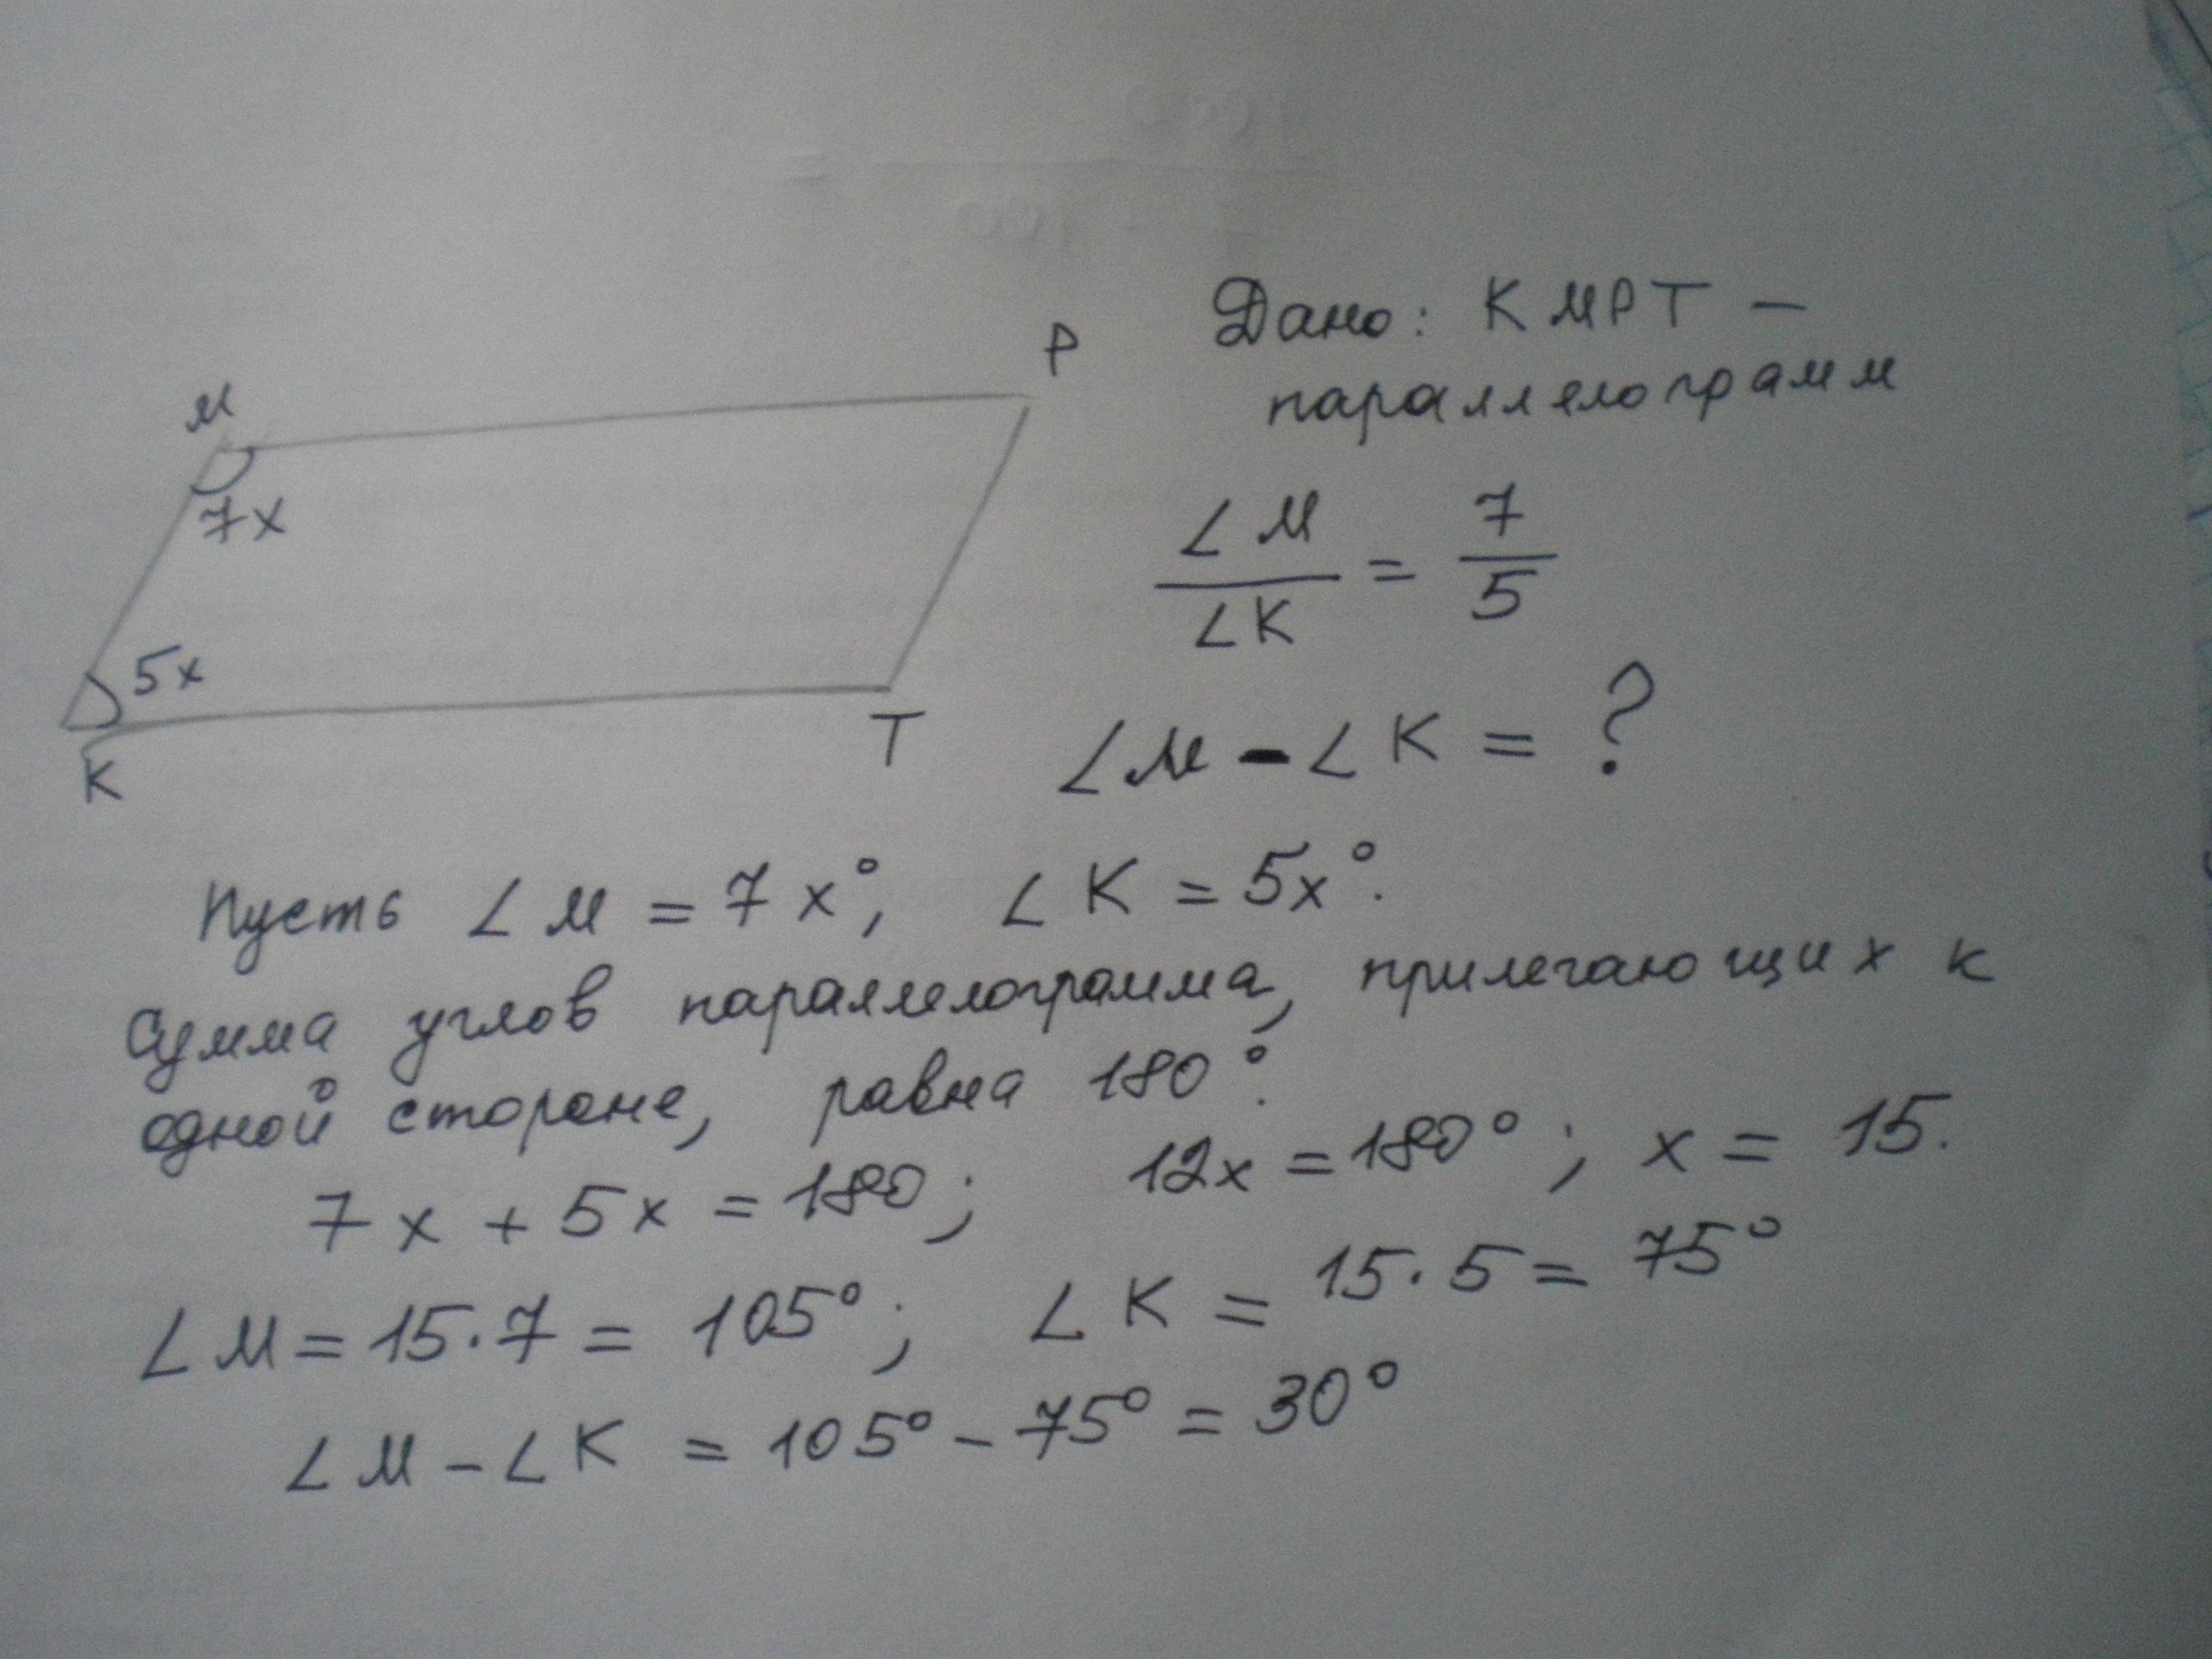 M
P
7x
5x
K
T
Дано: KMPT –
параллелограмм
∠M/∠K = 7/5
∠M – ∠K = ?
Пусть ∠M = 7x°, ∠K = 5x°.
Сумма углов параллелограмма, прилегающих к
одной стороне, равна 180°.
7x + 5x = 180; 12x = 180°; x = 15.
∠M = 15·7 = 105°; ∠K = 15·5 = 75°
∠M – ∠K = 105° – 75° = 30°